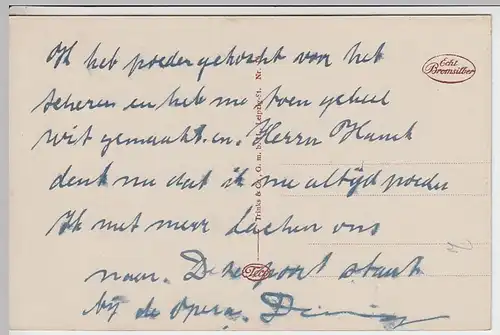 Ik heb poeder gekocht van het
scheren en heb me toen geheel
wit gemaakt. en. Herrn Hanek
denk nu dat ik me altijd poeder
Ik met meer Lachen ons
naar. Deze poort staat
bij de opera.
Echt
Bromsilber
Trinks & Co., G. m. b. H., Leipzig-St. Nr.